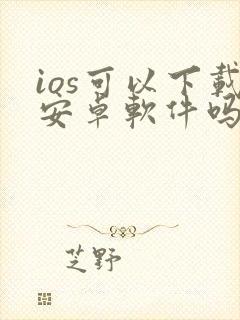 ios可以下載
安卓軟件吗
芝野